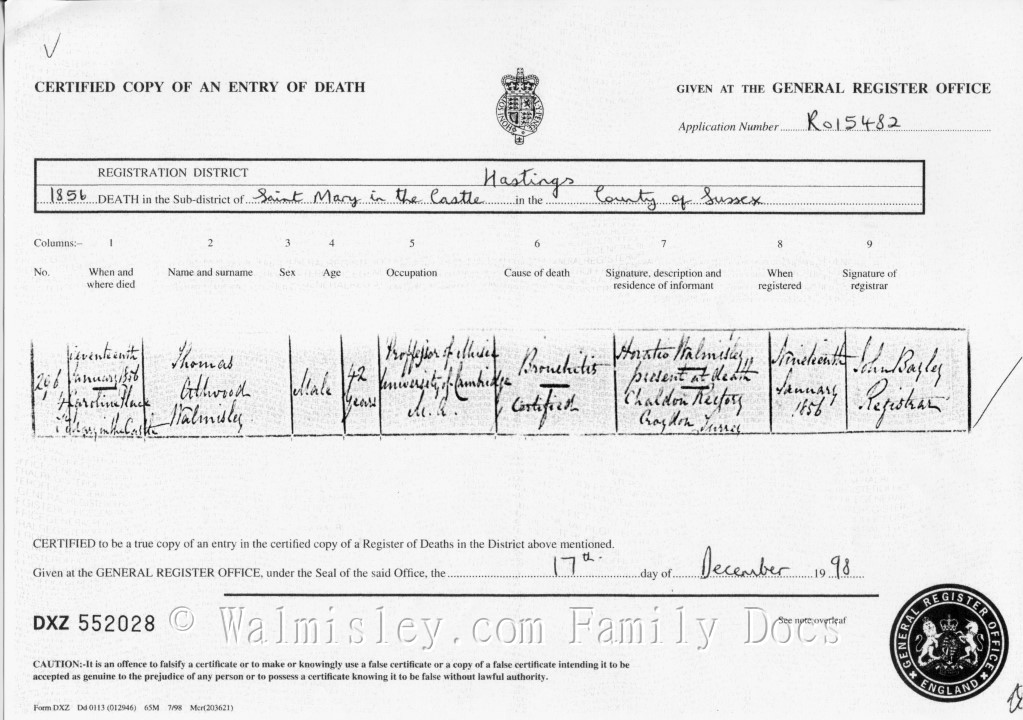 CERTIFIED COPY OF AN ENTRY OF DEATH
GIVEN AT THE GENERAL REGISTER OFFICE
Application Number R015482
REGISTRATION DISTRICT Hastings
1856 DEATH in the Sub-district of Saint Mary in the Castle in the County of Sussex
Columns:– 1 2 3 4 5 6 7 8 9
No. When and where died Name and surname Sex Age Occupation Cause of death Signature, description and residence of informant When registered Signature of registrar
296
Seventeenth
January 1856
4 Caroline Place
St Mary in the Castle
Thomas
Attwood
Walmisley
Male
42
Years
Professor of Music
University of Cambridge
M.A.
Bronchitis
Certified
Horatio Walmisley
present at death
Chaldon Rectory
Croydon Surrey
Nineteenth
January
1856
John Bagley
Registrar
CERTIFIED to be a true copy of an entry in the certified copy of a Register of Deaths in the District above mentioned.
Given at the GENERAL REGISTER OFFICE, under the Seal of the said Office, the 17th day of December 1998
DXZ 552028
© Walmisley.com Family Docs
See note overleaf
CAUTION:-It is an offence to falsify a certificate or to make or knowingly use a false certificate or a copy of a false certificate intending it to be
accepted as genuine to the prejudice of any person or to possess a certificate knowing it to be false without lawful authority.
Form DXZ Dd 0113 (012946) 65M 7/98 Mcr(203621)
GENERAL REGISTER OFFICE
ENGLAND